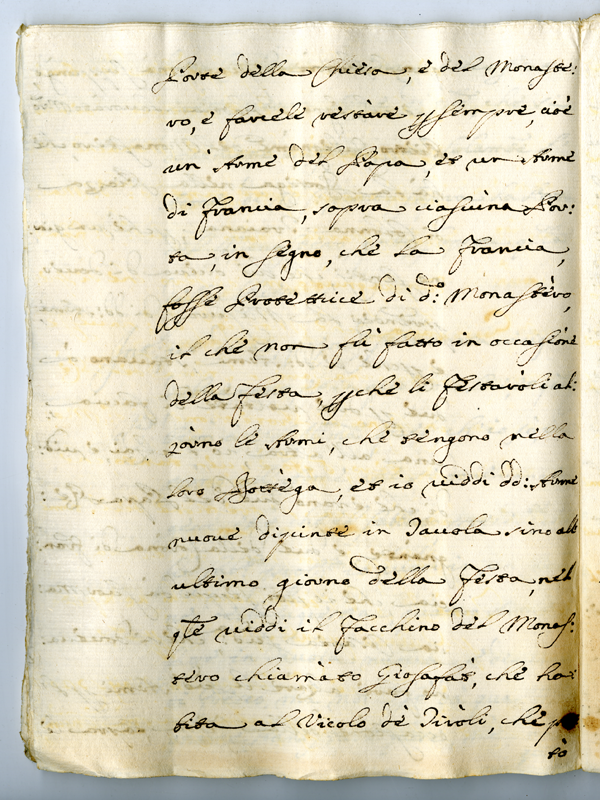 Porte della Chiesa, e del Monaste:
ro, e farcele restare p sempre, cioè
un' Arme del Papa, et un Arme
di Francia, sopra ciascuna Por:
ta, in segno, che la Francia,
fosse Protettrice di d.º Monastèro,
il che non fù fatto in occasione
della Festa, p che li Festaroli al:
zorno le Armi, che tengono nella
loro Bottèga, et io viddi dd: Arme
nuove dipinte in Tavola sino all
ultimo giorno della Festa, nel
qle viddi il Facchino del Monas:
tero chiamàto Giosafàt, che ha:
bita al Vicolo dè Tiròli, che
tò